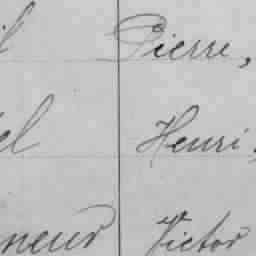 Pierre,
el Henri,
neur Victor